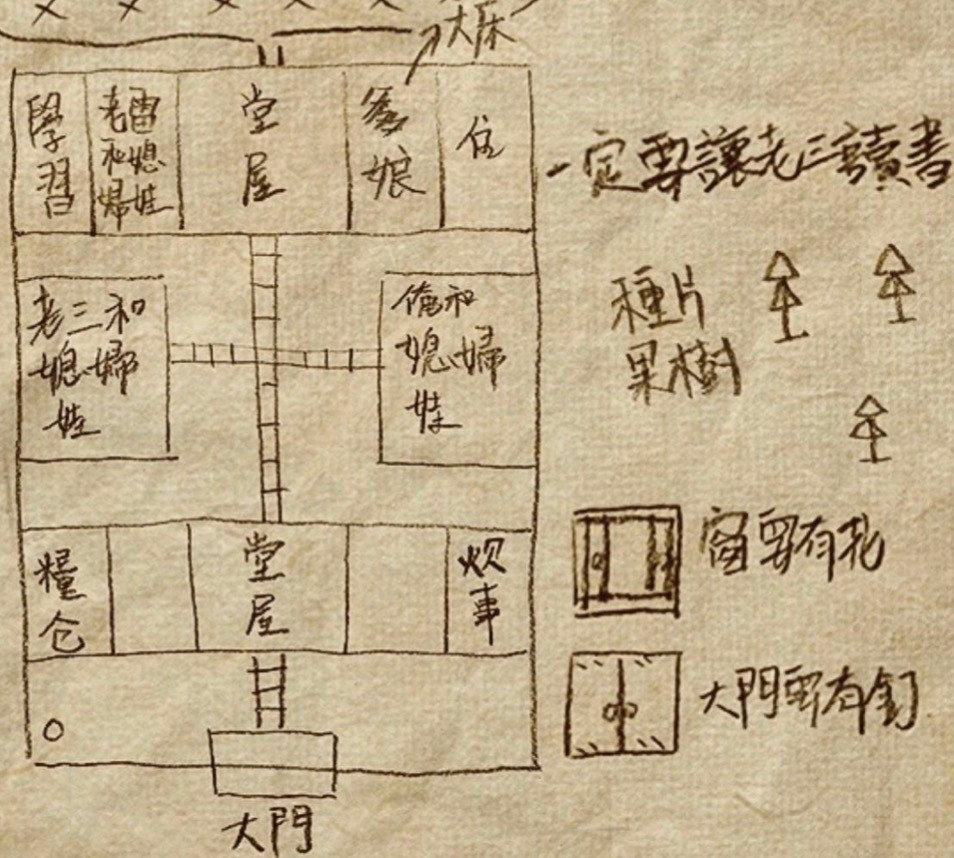 大床
學習
老雷
和媳
婦娃
堂屋
爹娘
住
一定要讓老三讀書
老三和
媳婦
娃
俺和
媳婦
娃
種片
果樹
糧仓
堂屋
炊事
窗要有
大門要有釘
大門